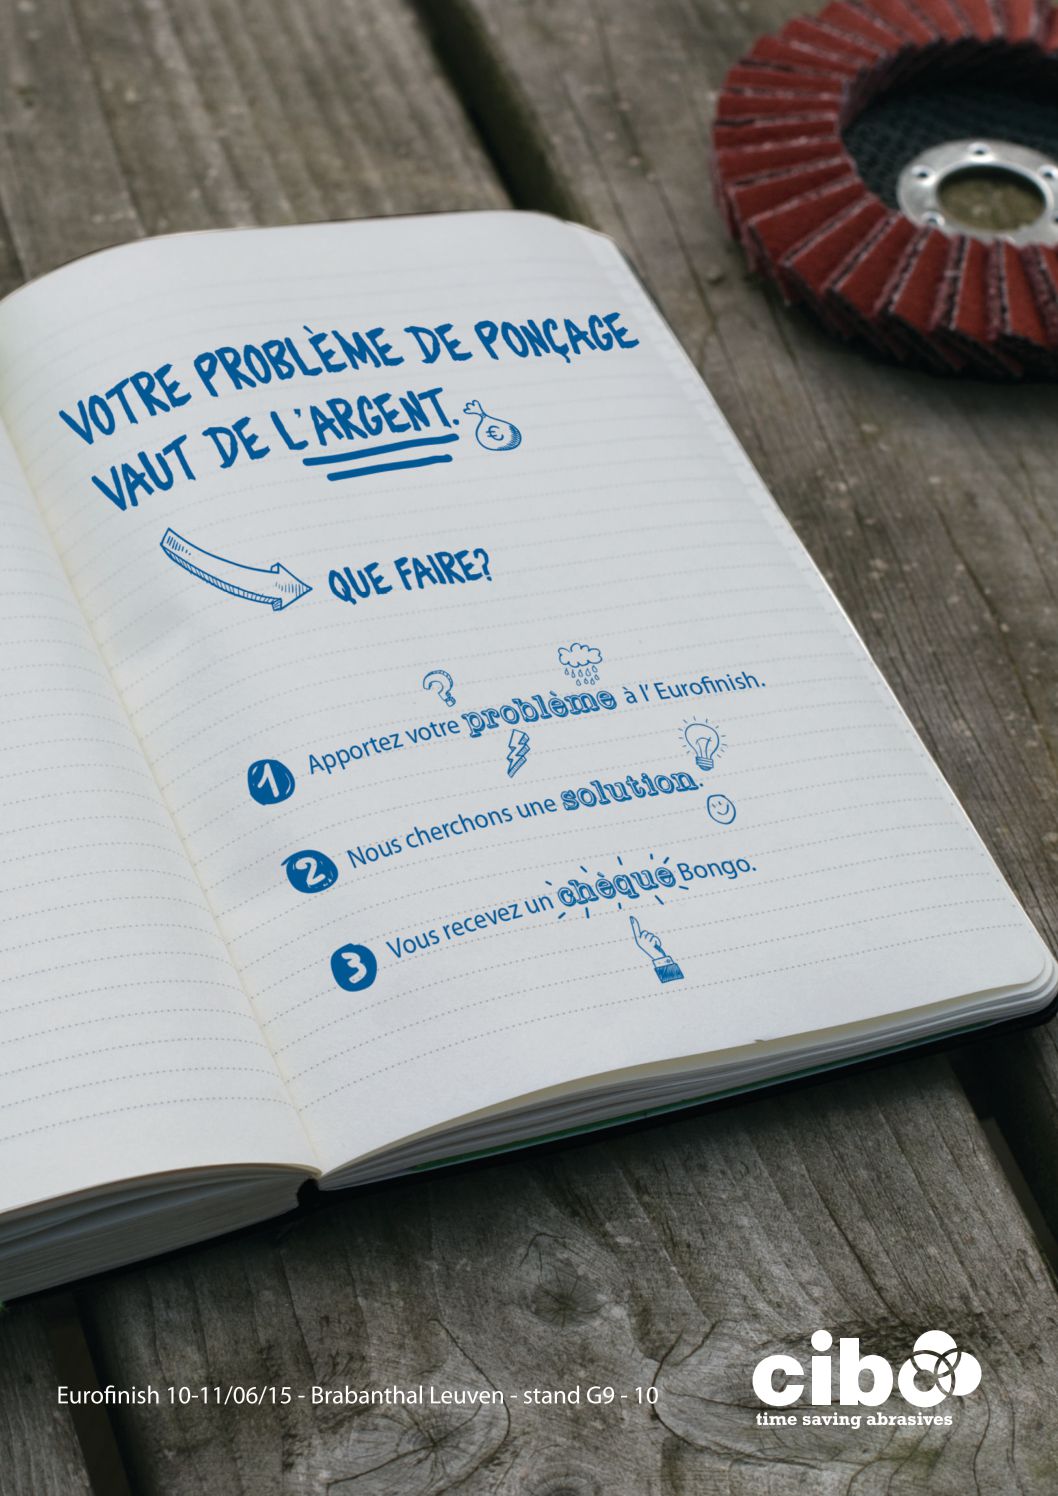 VOTRE PROBLÈME DE PONÇAGE
VAUT DE L'ARGENT.
€
QUE FAIRE?
1 Apportez votre problème à l' Eurofinish.
2 Nous cherchons une solution.
3 Vous recevez un chèque Bongo.
Eurofinish 10-11/06/15 - Brabanthal Leuven - stand G9 - 10
cibo
time saving abrasives